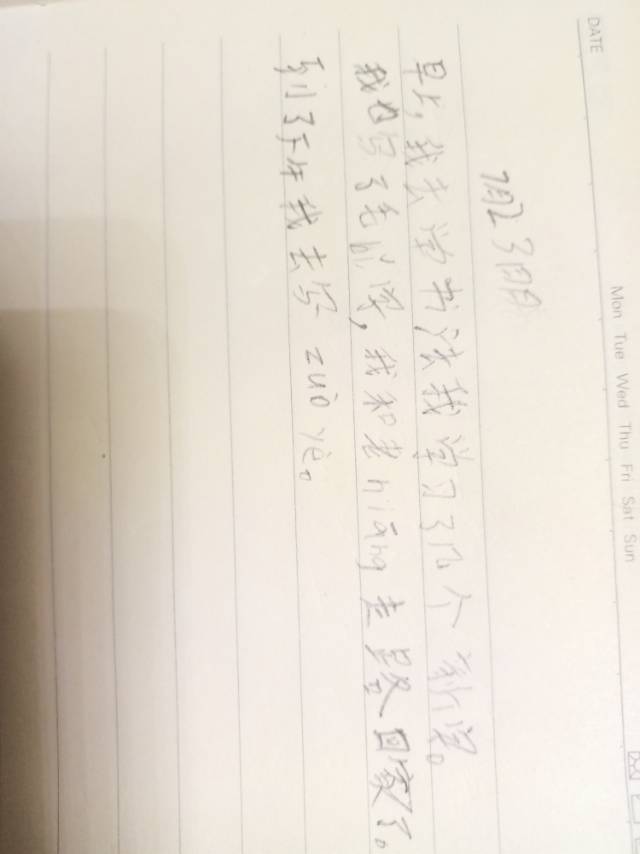 DATE
Mon Tue Wed Thu Fri Sat Sun
7月23日
早上,我去学书法我学习了几个新字。
我也写了毛笔字,我和老niáng走路回家了。
到了下午我去写zuò yè。